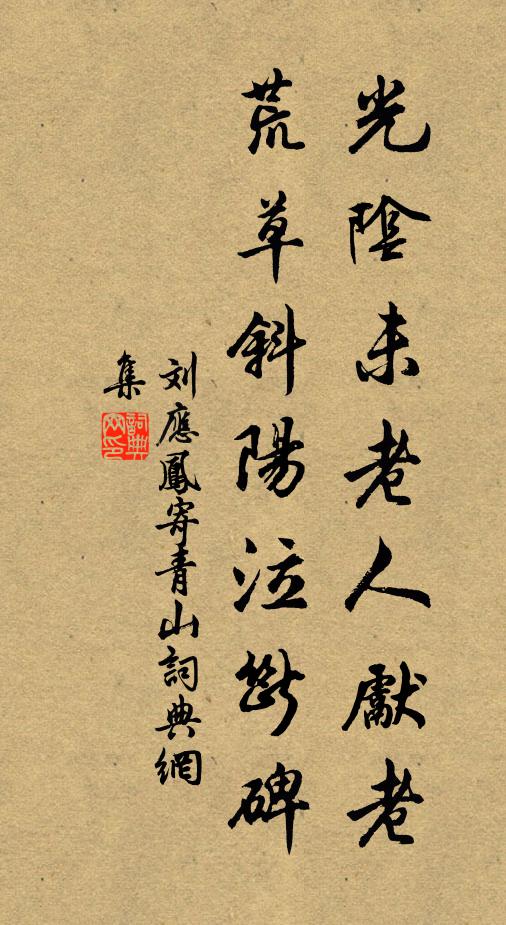 光陰未老人獻老
荒草斜陽泣斷碑
刘應鳳寄青山詞典網
集
詞典网印